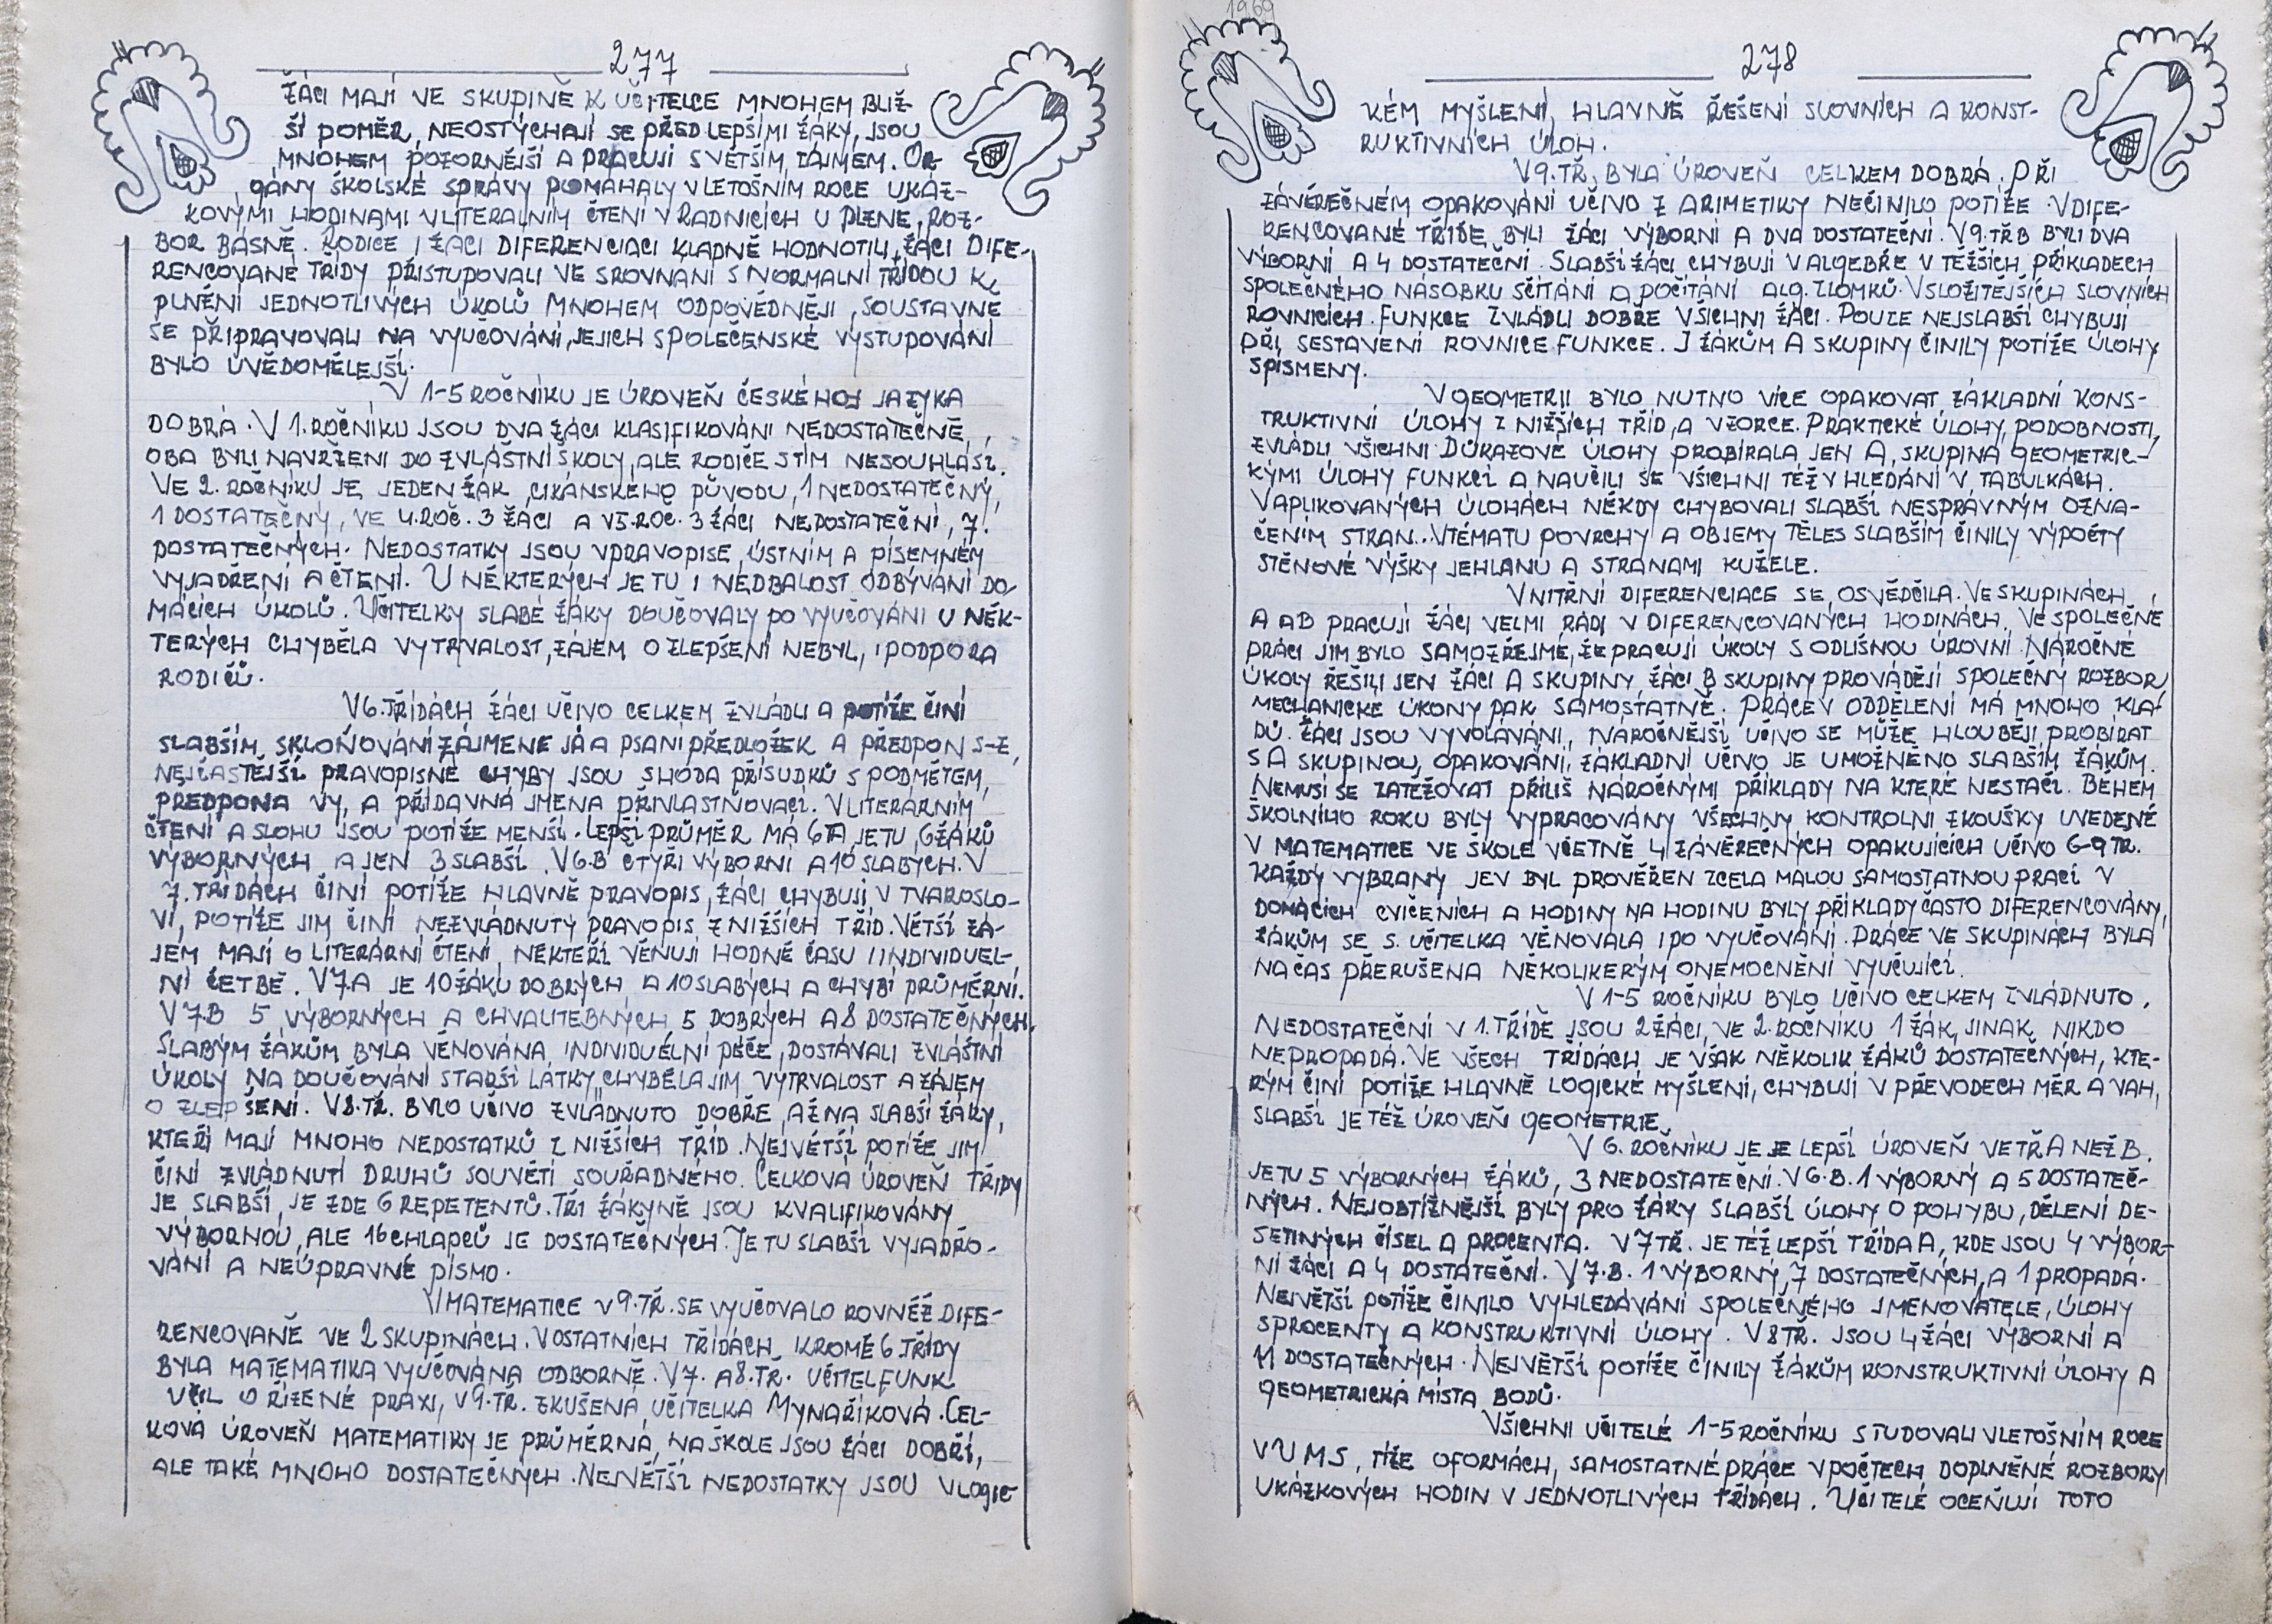 277
ŽÁCI MAJÍ VE SKUPINĚ K UČITELCE MNOHEM BLIŽ-
ŠÍ POMĚR, NEOSTÝCHAJÍ SE PŘED LEPŠÍMI ŽÁKY, JSOU
MNOHEM POZORNĚJŠÍ A PRACUJÍ S VĚTŠÍM ZÁJMEM. OR-
GÁNY ŠKOLSKÉ SPRÁVY POMÁHALY V LETOŠNÍM ROCE UKÁZ-
KOVÝMI HODINAMI V LITERALNÍM ČTENÍ V RADNICÍCH U PLZNE, ROZ-
BOR BÁSNĚ. RODICE I ŽÁCI DIFERENCIACI KLADNĚ HODNOTILI, ŽÁCI DIFE-
RENCOVANÉ TŘÍDY PŘISTUPOVALI VE SROVNÁNÍ S NORMALNÍ TŘÍDOU K
PLNĚNÍ JEDNOTLIVÝCH ÚKOLŮ MNOHEM ODPOVĚDNĚJI, SOUSTAVNĚ
SE PŘIPRAVOVALI NA VYUČOVÁNÍ, JEJICH SPOLEČENSKÉ VYSTUPOVÁNÍ
BYLO UVĚDOMĚLEJŠÍ.
V 1-5 ROČNÍKU JE ÚROVEŇ ČESKÉHO JAZYKA
DOBRÁ. V 1. ROČNÍKU JSOU DVA ŽÁCI KLASIFIKOVÁNI NEDOSTATEČNĚ,
OBA BYLI NAVRŽENI DO ZVLÁŠTNÍ ŠKOLY, ALE RODIČE S TÍM NESOUHLASÍ.
VE 2. ROČNÍKU JE JEDEN ŽÁK CIKÁNSKÉHO PŮVODU, 1 NEDOSTATEČNÝ,
1 DOSTATEČNÝ, VE 4. ROČ. 3 ŽÁCI A V 5. ROČ. 3 ŽÁCI NEDOSTATEČNÍ, 7.
DOSTATEČNÝCH. NEDOSTATKY JSOU V PRAVOPISE, ÚSTNÍM A PÍSEMNÉM
VYJADŘENÍ A ČTENÍ. U NĚKTERÝCH JE TU I NEDBALOST ODBÝVÁNÍ DO-
MÁCÍCH ÚKOLŮ. UČITELKY SLABÉ ŽÁKY DOUČOVALY PO VYUČOVÁNÍ U NĚK-
TERÝCH CHYBĚLA VYTRVALOST, ZÁJEM O ZLEPŠENÍ NEBYL, I PODPORA
RODIČŮ.
V 6. TŘÍDÁCH ŽÁCI UČIVO CELKEM ZVLÁDLI A POTÍŽE ČINÍ
SLABŠÍM SKLOŇOVÁNÍ ZÁJMENE JÁ A PSANÍ PŘEDLOŽEK A PŘEDPON S-Z,
NEJČASTĚJŠÍ PRAVOPISNÉ CHYBY JSOU SHODA PŘÍSUDKŮ S PODMĚTEM,
PŘEDPONA VY, A PŘÍDAVNÁ JMÉNA PŘIVLASTŇOVACÍ. V LITERÁRNÍM
ČTENÍ A SLOHU JSOU POTÍŽE MENŠÍ. LEPŠÍ PRŮMĚR MÁ 6A, JE TU 6 ŽÁKŮ
VÝBORNÝCH A JEN 3 SLABŠÍ. V 6.B ČTYŘI VÝBORNÍ A 10 SLABÝCH. V
7. TŘÍDÁCH ČINÍ POTÍŽE HLAVNĚ PRAVOPIS, ŽÁCI CHYBUJÍ V TVAROSLO-
VÍ, POTÍŽE JIM ČINÍ NEZVLÁDNUTÝ PRAVOPIS Z NIŽŠÍCH TŘÍD. VĚTŠÍ ZÁ-
JEM MAJÍ O LITERÁRNÍ ČTENÍ, NĚKTEŘÍ VĚNUJÍ HODNĚ ČASU I INDIVIDUEL-
NÍ ČETBĚ. V 7A JE 10 ŽÁKŮ DOBRÝCH A 10 SLABÝCH A CHYBÍ PRŮMĚRNÍ.
V 7.B 5 VÝBORNÝCH A CHVALITEBNÝCH 5 DOBRÝCH A 8 DOSTATEČNÝCH.
SLABÝM ŽÁKŮM BYLA VĚNOVÁNA INDIVIDUÉLNÍ PÉČE, DOSTÁVALI ZVLÁŠTNÍ
ÚKOLY NA DOUČOVÁNÍ STARŠÍ LÁTKY, CHYBĚLA JIM VYTRVALOST A ZÁJEM
O ZLEPŠENÍ. V 8. TŘ. BYLO UČIVO ZVLÁDNUTO DOBŘE, AŽ NA SLABŠÍ ŽÁKY,
KTEŘÍ MAJÍ MNOHO NEDOSTATKŮ Z NIŽŠÍCH TŘÍD. NEJVĚTŠÍ POTÍŽE JIM
ČINÍ ZVLÁDNUTÍ DRUHŮ SOUVĚTÍ SOUŘADNÉHO. CELKOVÁ ÚROVEŇ TŘÍDY
JE SLABŠÍ, JE ZDE 6 REPETENTŮ. TŘI ŽÁKYNĚ JSOU KVALIFIKOVÁNY
VÝBORNOU, ALE 16 CHLAPCŮ JE DOSTATEČNÝCH. JE TU SLABŠÍ VYJADŘO-
VÁNÍ A NEÚPRAVNÉ PÍSMO.
V MATEMATICE V 9. TŘ. SE VYUČOVALO ROVNĚŽ DIFE-
RENCOVANĚ VE 2 SKUPINÁCH. V OSTATNÍCH TŘÍDÁCH KROMĚ 6. TŘÍDY
BYLA MATEMATIKA VYUČOVÁNA ODBORNĚ. V 7. A 8. TŘ. UČITEL FUNK
UČIL O ŘÍZENÉ PRAXI, V 9. TŘ. ZKUŠENÁ UČITELKA MYNAŘÍKOVÁ. CEL-
KOVÁ ÚROVEŇ MATEMATIKY JE PRŮMĚRNÁ, NA ŠKOLE JSOU ŽÁCI DOBŘÍ,
ALE TAKÉ MNOHO DOSTATEČNÝCH. NEJVĚTŠÍ NEDOSTATKY JSOU V LOGIC-
1969
278
KÉM MYŠLENÍ, HLAVNĚ ŘEŠENÍ SLOVNÍCH A KONST-
RUKTIVNÍCH ÚLOH.
V 9. TŘ. BYLA ÚROVEŇ CELKEM DOBRÁ. PŘI
ZÁVĚREČNÉM OPAKOVÁNÍ UČIVO Z ARIMETIKY NEČINILO POTÍŽE. V DIFE-
RENCOVANÉ TŘÍDE BYLI ŽÁCI VÝBORNÍ A DVA DOSTATEČNÍ. V 9. TŘ B BYLI DVA
VÝBORNÍ A 4 DOSTATEČNÍ. SLABŠÍ ŽÁCI CHYBUJÍ V ALGEBŘE V TĚŽŠÍCH PŘÍKLADECH
SPOLEČNÉHO NÁSOBKU SČÍTÁNÍ A POČÍTÁNÍ ALG. ZLOMKŮ. V SLOŽITĚJŠÍCH SLOVNÍCH
ROVNICÍCH. FUNKCE ZVLÁDLI DOBŘE VŠICHNI ŽÁCI. POUZE NEJSLABŠÍ CHYBUJÍ
PŘI SESTAVENÍ ROVNICE FUNKCE. I ŽÁKŮM A SKUPINY ČINILY POTÍŽE ÚLOHY
S PÍSMENY.
V GEOMETRII BYLO NUTNO VÍCE OPAKOVAT ZÁKLADNÍ KONS-
TRUKTIVNÍ ÚLOHY Z NIŽŠÍCH TŘÍD, A VZORCE. PRAKTICKÉ ÚLOHY, PODOBNOSTI,
ZVLÁDLI VŠICHNI. DŮKAZOVÉ ÚLOHY PROBÍRALA JEN A, SKUPINA GEOMETRIC-
KÝMI ÚLOHY FUNKCÍ A NAUČILI SE VŠICHNI TÉŽ V HLEDÁNÍ V TABULKÁCH.
V APLIKOVANÝCH ÚLOHÁCH NĚKDY CHYBOVALI SLABŠÍ NESPRÁVNÝM OZNA-
ČENÍM STRAN... V TÉMATU POVRCHY A OBJEMY TĚLES SLABŠÍM ČINILY VÝPOČTY
STĚNOVÉ VÝŠKY JEHLANU A STRANAMI KUŽELE.
VNITŘNÍ DIFERENCIACE SE OSVĚDČILA. VE SKUPINÁCH
A A B PRACUJÍ ŽÁCI VELMI RÁDI V DIFERENCOVANÝCH HODINÁCH. VE SPOLEČNÉ
PRÁCI JIM BYLO SAMOZŘEJMÉ, ŽE PRACUJÍ ÚKOLY S ODLIŠNOU ÚROVNÍ. NÁROČNÉ
ÚKOLY ŘEŠILI JEN ŽÁCI A SKUPINY, ŽÁCI B SKUPINY PROVÁDĚJÍ SPOLEČNÝ ROZBOR,
MECHANICKÉ ÚKONY PAK SAMOSTATNĚ. PRÁCE V ODDĚLENÍ MÁ MNOHO KLA-
DŮ. ŽÁCI JSOU VYVOLÁVÁNI, NÁROČNĚJŠÍ UČIVO SE MŮŽE HLOUBĚJI PROBÍRAT
S A SKUPINOU, OPAKOVÁNÍ, ZÁKLADNÍ UČIVO JE UMOŽNĚNO SLABŠÍM ŽÁKŮM.
NEMUSÍ SE ZATĚŽOVAT PŘÍLIŠ NÁROČNÝMI PŘÍKLADY NA KTERÉ NESTAČÍ. BĚHEM
ŠKOLNÍHO ROKU BYLY VYPRACOVÁNY VŠECHNY KONTROLNÍ ZKOUŠKY UVEDENÉ
V MATEMATICE VE ŠKOLE VČETNĚ 4 ZÁVĚREČNÝCH OPAKUJÍCÍCH UČIVO 6-9 TŘ.
KAŽDÝ VYBRANÝ JEV BYL PROVĚŘEN ZCELA MALOU SAMOSTATNOU PRACÍ V
DOMÁCÍCH CVIČENÍCH A HODINY NA HODINU BYLY PŘÍKLADY ČASTO DIFERENCOVÁNY,
ŽÁKŮM SE S. UČITELKA VĚNOVALA I PO VYUČOVÁNÍ. PRÁCE VE SKUPINÁCH BYLA
NA ČAS PŘERUŠENA NĚKOLIKERÝM ONEMOCNĚNÍ VYUČUJÍCÍ.
V 1-5 ROČNÍKU BYLO UČIVO CELKEM ZVLÁDNUTO.
NEDOSTATEČNÍ V 1. TŘÍDĚ JSOU 2 ŽÁCI, VE 2. ROČNÍKU 1 ŽÁK, JINAK NIKDO
NEPROPADÁ. VE VŠECH TŘÍDÁCH JE VŠAK NĚKOLIK ŽÁKŮ DOSTATEČNÝCH, KTE-
RÝM ČINÍ POTÍŽE HLAVNĚ LOGICKÉ MYŠLENÍ, CHYBUJÍ V PŘEVODECH MĚR A VAH,
SLABŠÍ JE TÉŽ ÚROVEŇ GEOMETRIE.
V 6. ROČNÍKU JE JE LEPŠÍ ÚROVEŇ VE TŘ A NEŽ B.
JE TU 5 VÝBORNÝCH ŽÁKŮ, 3 NEDOSTATEČNÍ. V 6.B. 1 VÝBORNÝ A 5 DOSTATEČ-
NÝCH. NEJOBTÍŽNĚJŠÍ BYLY PRO ŽÁKY SLABŠÍ ÚLOHY O POHYBU, DĚLENÍ DE-
SETINÝCH ČÍSEL A PROCENTA. V 7 TŘ. JE TÉŽ LEPŠÍ TŘÍDA A, KDE JSOU 4 VÝBOR-
NÍ ŽÁCI A 4 DOSTATEČNÍ. V 7.B. 1 VÝBORNÝ, 7 DOSTATEČNÝCH, A 1 PROPADÁ.
NEJVĚTŠÍ POTÍŽE ČINILO VYHLEDÁVÁNÍ SPOLEČNÉHO JMENOVATELE, ÚLOHY
S PROCENTY A KONSTRUKTIVNÍ ÚLOHY. V 8 TŘ. JSOU 4 ŽÁCI VÝBORNÍ A
11 DOSTATEČNÝCH. NEJVĚTŠÍ POTÍŽE ČINILY ŽÁKŮM KONSTRUKTIVNÍ ÚLOHY A
GEOMETRICKÁ MÍSTA BODŮ.
VŠICHNI UČITELÉ 1-5 ROČNÍKU STUDOVALI V LETOŠNÍM ROCE
V U M S, TÍŽE O FORMÁCH, SAMOSTATNÉ PRÁCE V POČTECH DOPLNĚNÉ ROZBORY
UKÁZKOVÝCH HODIN V JEDNOTLIVÝCH TŘÍDÁCH. UČITELÉ OCEŇUJÍ TOTO